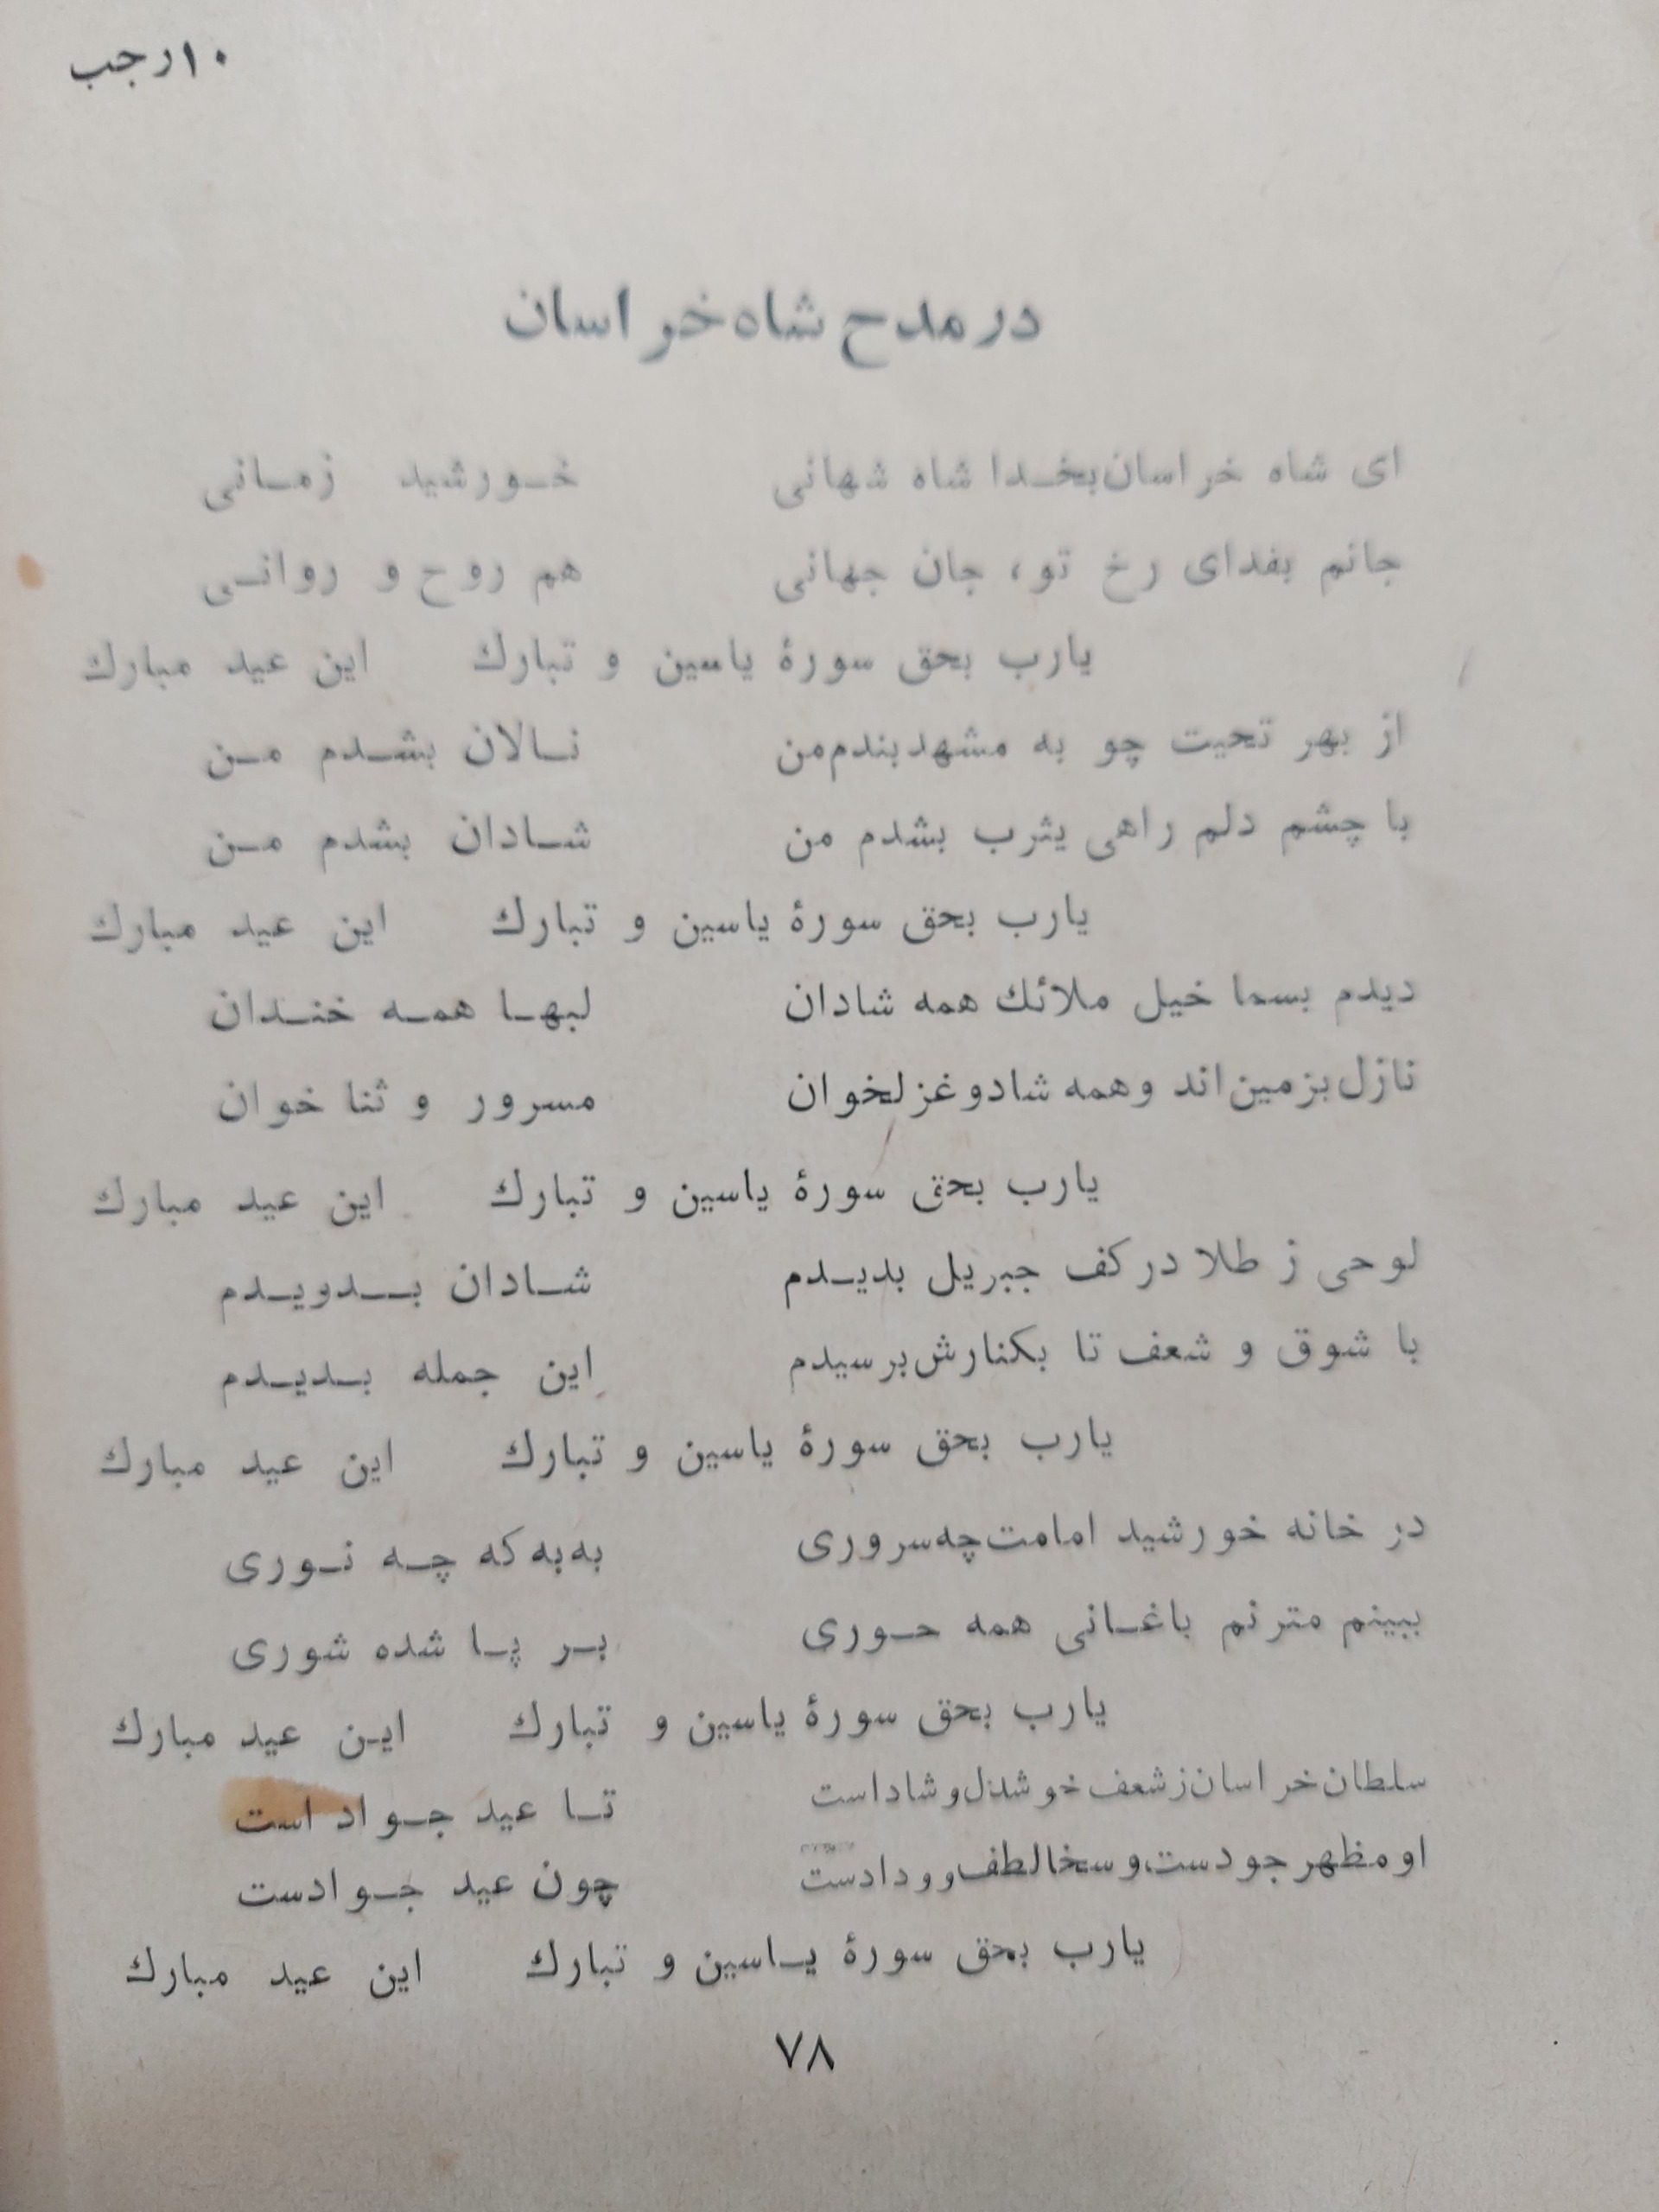 ۱۰رجب
در مدح شاه خراسان
ای شاه خراسان بخدا شاه شهانی خورشید زمانی
جانم بفدای رخ تو، جان جهانی هم روح و روانی
یارب بحق سورهٔ یاسین و تبارك این عید مبارك
از بهر تحیت چو به مشهد بندم من نالان بشدم من
با چشم دلم راهی یثرب بشدم من شادان بشدم من
یارب بحق سورهٔ یاسین و تبارك این عید مبارك
دیدم بسما خیل ملائك همه شادان لبها همه خندان
نازل بزمین‌اند و همه شاد و غزلخوان مسرور و ثنا خوان
یارب بحق سورهٔ یاسین و تبارك این عید مبارك
لوحی ز طلا در کف جبریل بدیدم شادان بدویدم
با شوق و شعف تا بکنارش برسیدم این جمله بدیدم
یارب بحق سورهٔ یاسین و تبارك این عید مبارك
در خانه خورشید امامت چه سروری به به که چه نوری
ببینم مترنم باغانی همه حوری بر پا شده شوری
یارب بحق سورهٔ یاسین و تبارك این عید مبارك
سلطان خراسان ز شعف خوشدل و شاد است تا عید جواد است
او مظهر جودست و سخا لطف و ودادست چون عید جوادست
یارب بحق سورهٔ یاسین و تبارك این عید مبارك
۷۸